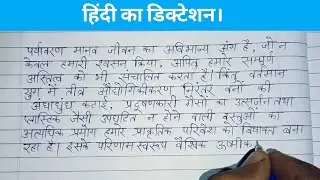 हिंदी का डिक्टेशन।
पर्यावरण मानव जीवन का अविभाज्य अंग है, जो न
केवल हमारी श्वसन क्रिया, अपितु हमारे सम्पूर्ण
अस्तित्व को भी संचालित करता है। किंतु वर्तमान
युग में तीव्र औद्योगिकीकरण निरंतर वनों की
अंधाधुंध कटाई, प्रदूषणकारी गैसों का उत्सर्जन तथा
प्लास्टिक जैसी अपघटित न होने वाली वस्तुओं का
अत्यधिक प्रयोग हमारे प्राकृतिक परिवेश को विषाक्त बना
रहा है। इसके परिणाम स्वरूप वैश्विक उष्मीक